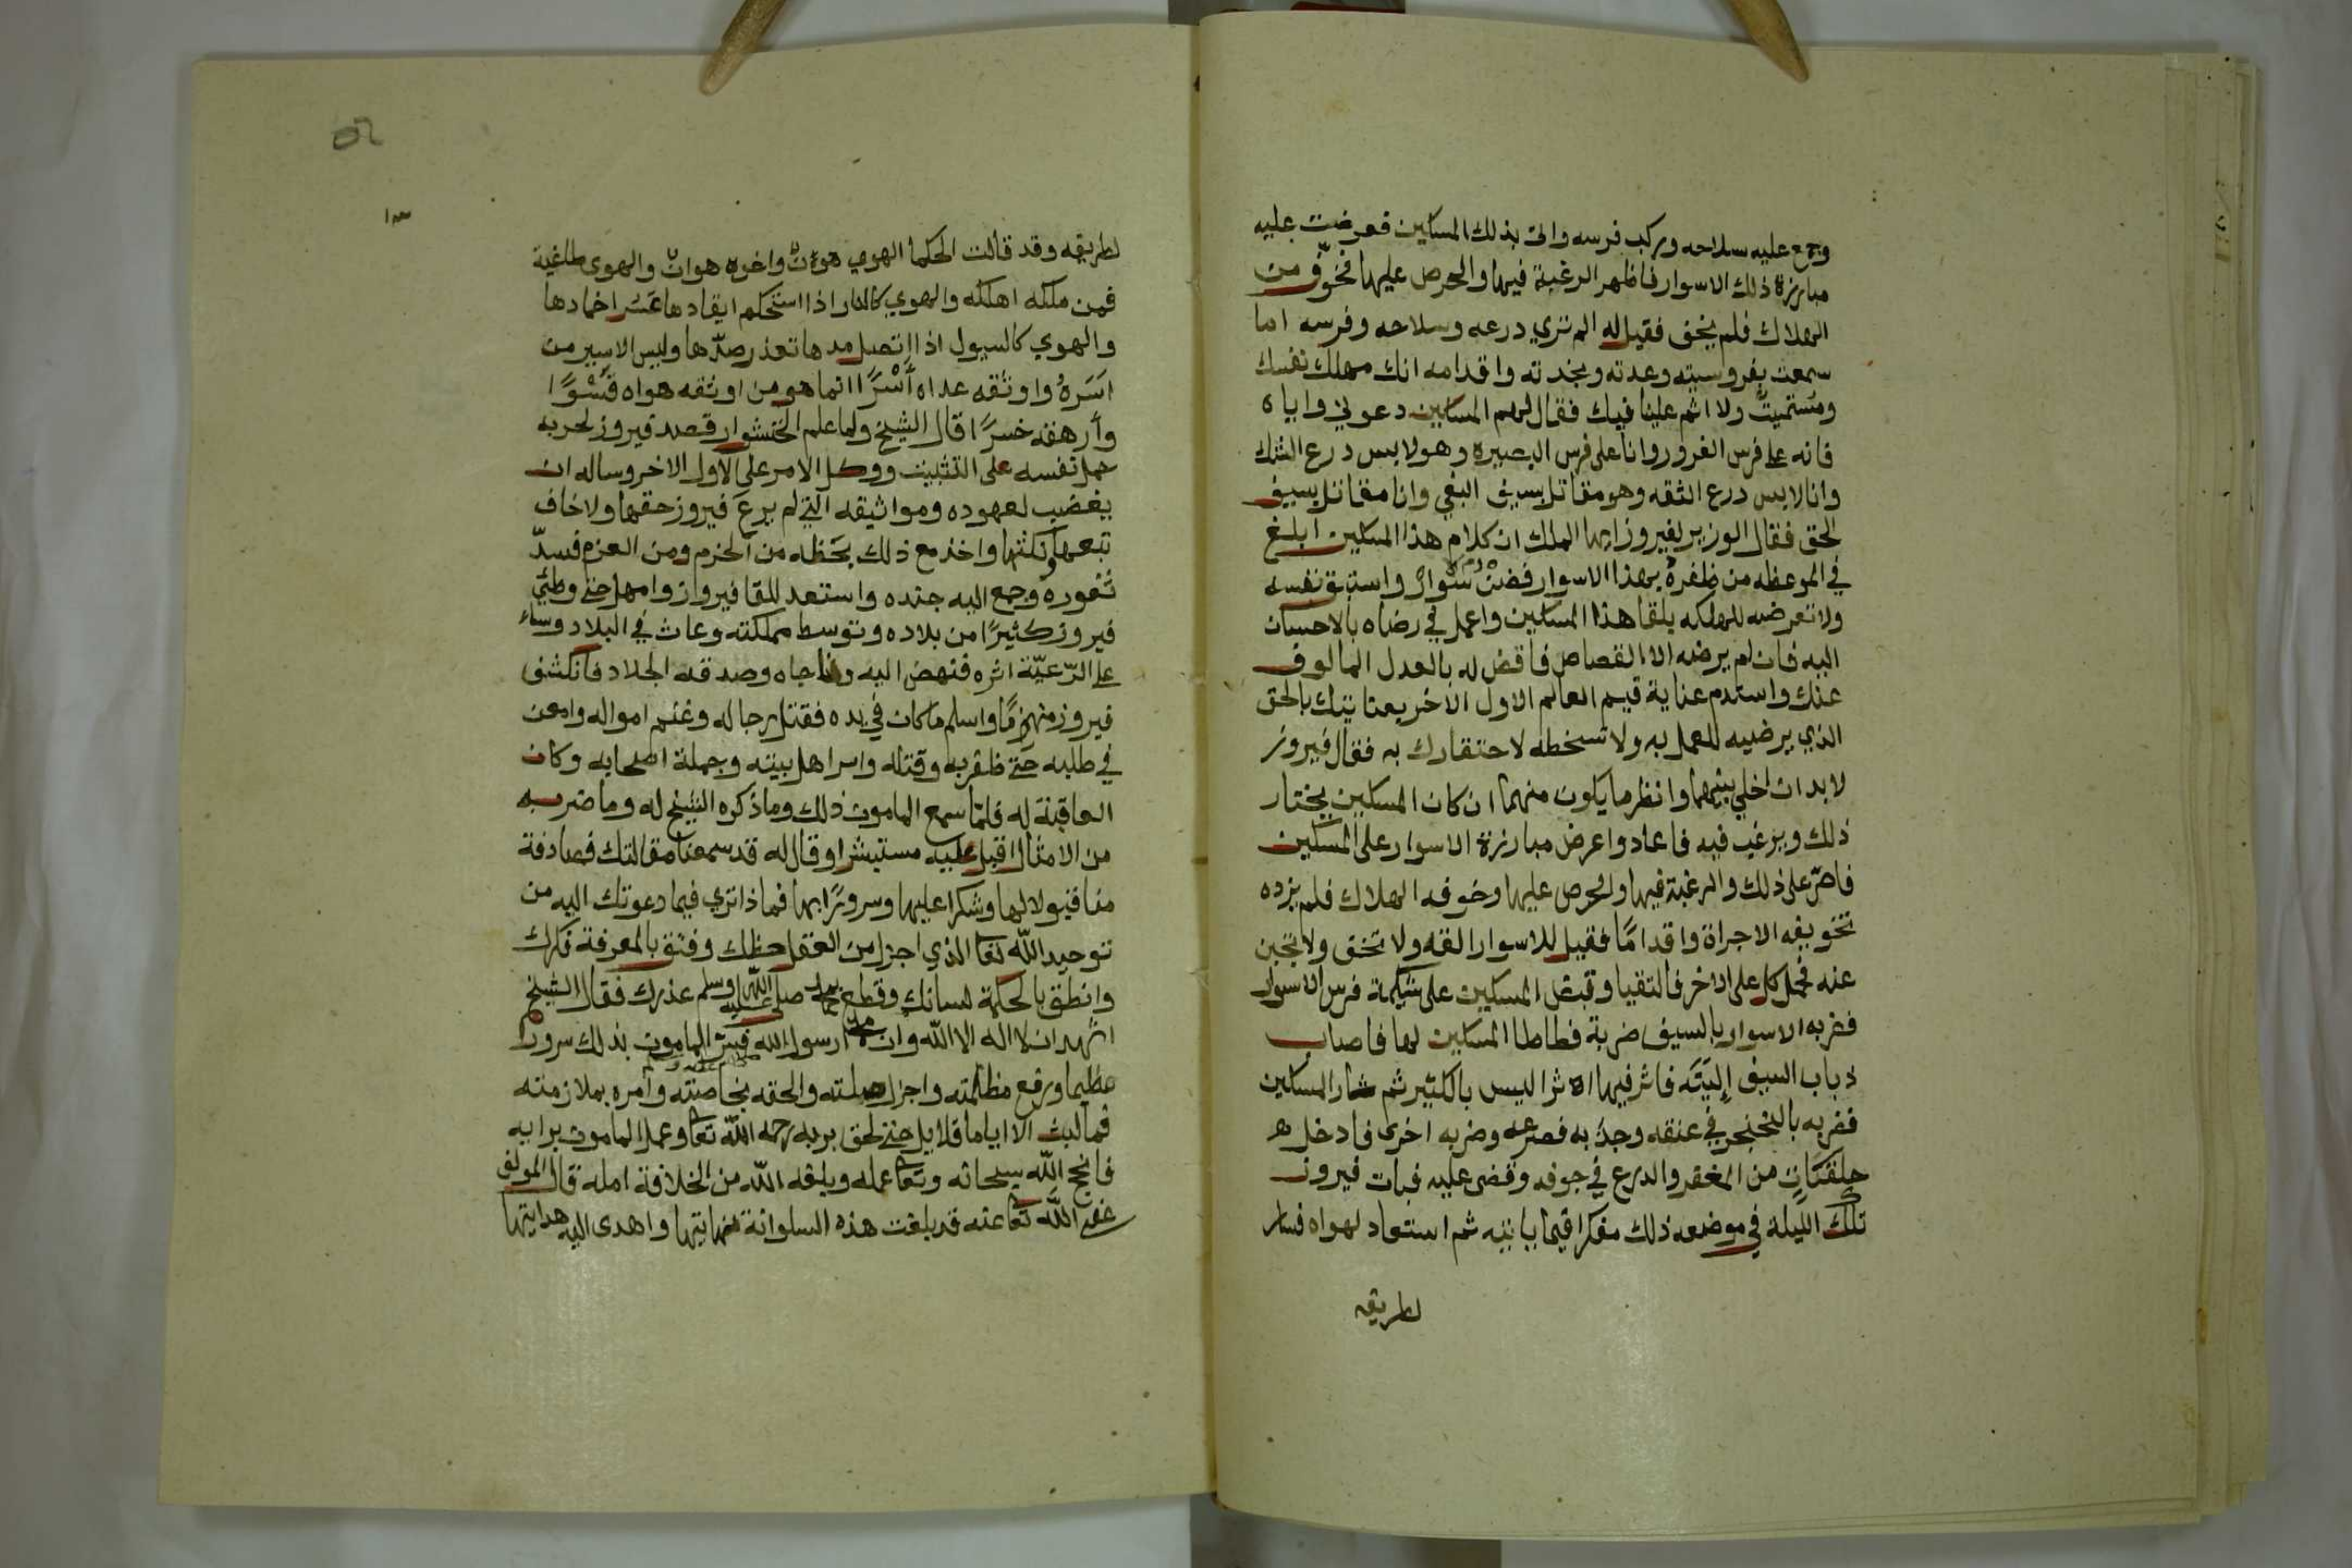 وجمع عليه سلاحه وركب فرسه واتى بذلك المسكين فعرضت عليه
مبارزة ذلك الاسوار فاظهر الرغبة فيها والحرص عليها فخوّف من
الهلاك فلم يخف فقيل له الم تري درعه وسلاحه وفرسه اما
سمعت بفروسيته وعدته ونجدته واقدامه انك مهلك نفسك
ومستميت ولا اثم علينا فيك فقال لهم المسكين دعوني واياه
فانه على فرس الغرور وانا على فرس البصيره وهو لابس درع الشك
وانا لابس درع الثقه وهو مقاتل بسيف البغي وانا مقاتل بسيف
الحق فقال الوزير لفيروز ايها الملك ان كلام هذا المسكين ابلغ
في الموعظه من ظفره بهذا الاسوار واستبق نفسه
ولا تعرضه للهلكه بلقا هذا المسكين واعمل في رضاه بالاحسان
اليه فان لم يرضه الا القصاص فاقض له بالعدل المالوف
عنك واستدم عناية قيم العالم الاول الاخر بعنايتك بالحق
الذي يرضيه العمل به ولا تسخطه لاحتقارك به فقال فيروز
لا بد ان اخلي بينهما وانظر ما يكون منهما ان كان المسكين يختار
ذلك ويرغب فيه فاعاد واعرض مبارزة الاسوار على المسكين
فاصرّ على ذلك والرغبة فيها والحرص عليها وخوفه الهلاك فلم يزده
تخويفه الا جراة واقدامًا فقيل للاسوار القه ولا تخف ولا تجبن
عنه فحمل كل على الاخر فالتقيا وقبض المسكين على شكيمة فرس الاسوار
فضربه الاسوار بالسيف ضربة فطاطا المسكين لها فاصاب
ذباب السيف إليَتَه فاثر فيها اثرا ليس بالكثير ثم المسكين
فضربه بالخنجر في عنقه وجذبه فصرعه وضربه اخرى فادخل
حلقتان من المغفر والدرع في جوفه وقضى عليه فبات فيروز
تلك الليلة في موضعه ذلك مفكرا فيما ياتيه ثم استعاد لهواه فسار
لطريقه
لطريقه وقد قالت الحكما الهوي واخره هوان والهوى طاغية
فمن ملكه اهلكه والهوي كالنار اذا استحكم ايقادها عَسُر اخمادها
والهوي كالسيول اذا اتصل مدها تعذر صدّها وليس الاسير من
اَسَرَهُ واوثقه عداه أَسْرًا انما هو من اوثقه هواه قَسْوًا
وأرهقه خسرًا قال الشيخ ولما علم الخشوار قصد فيروز لحربه
حمل نفسه على التثبيت ووكل الامر على الاول الاخر وساله ان
يغضب لعهوده ومواثيقه التي لم يرعَ فيروز حقها ولا خاف
تبعهآ ونكثها واخذ مع ذلك بحَظه من الحزم ومن العزم فسدّ
ثغوره وجمع اليه جنده واستعد للقا فيروز وامهل حتى وطئَ
فيروز كثيرًا من بلاده وتوسط مملكته وعاث في البلاد وساء
على الرّعيّة اثره فنهض اليه وصدقه الجلاد فانكشف
فيروز منهزمًا واسلم ما كان في يده فقتل رجاله وغنم امواله وامعن
في طلبه حتى ظفر به وقتله واسر اهل بيته وجملة اصحابه وكان
العاقبة له فلمّا سمع المامون ذلك وما ذكره الشيخ له وما ضربه
من الامثال اقبل عليه مستبشرا وقال له قد سمعنا مقالتك فصادفة
منا قبولا لها وشكرا عليها وسرورًا بها فماذا تري فيما دعوتك اليه من
توحيد الله تعا الذي اجزل من العقل حظك وفتق بالمعرفة فكرك
وانطق بالحكمة لسانك وقطع بمحمد صلى الله عليه وسلم عذرك فقال الشيخ
اشهد ان لا اله الا الله وان محمدا رسول الله فسر المامون بذلك سرورا
عظيما ورفع مظلمته واجزل صلته والحقه بخاصته وامره بملازمته
فما لبث الا اياما قلايل حتى لحق بربه رحمه الله تعا وعمل المامون برايه
فانجح الله سبحانه وتعا عمله وبلغه الله من الخلافة امله قال المولف
غفر الله تعا عنه قد بلغت هذه السلوانة نهايتها واهدى اليه هدايتها